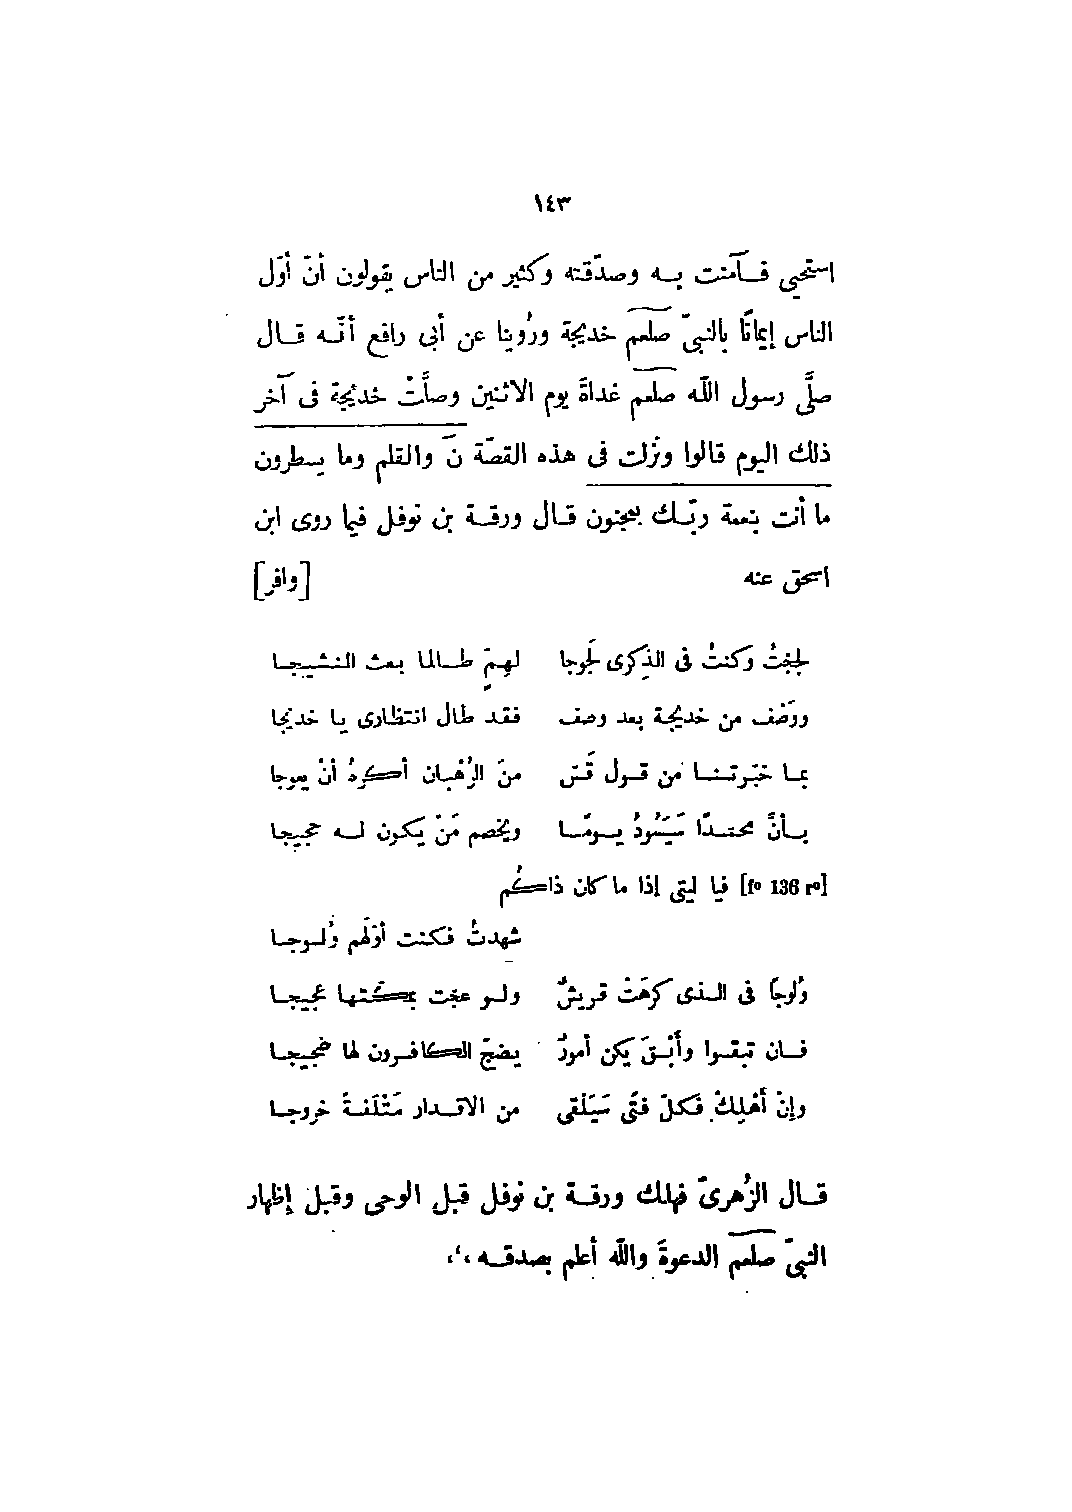 ١٤٣
استحيى فآمنت به وصدّقته وكثير من الناس يقولون أنّ أوّل
الناس إيمانًا بالنبىّ صلعم خديجة ورُوينا عن أبى رافع أنّه قال
صلَّى رسول الله صلعم غداةَ يوم الاثنين وصلَّتْ خديجة فى آخر
ذلك اليوم قالوا ونزلت فى هذه القصّة نۤ والقلم وما يسطرون
ما أنت بنعمة ربّك بمجنون قال ورقة بن نوفل فيما روى ابن
اسحق عنه [وافر]
لججْتُ وكنتُ فى الذِكرى لَجوجا لهمٍّ طالما بعث النشيجا
ووَصْف من خديجة بعد وصف فقد طال انتظارى يا خديجا
بما خبّرتنا من قول قَسّ منَ الرُهْبان أكرهُ أنْ يعوجا
بأنَّ محمّدًا سَيَسُودُ يومًا ويخصم مَنْ يكون له حجيجا
[fº 136 rº] فيا ليتى إذا ما كان ذاكُم
شهدتُ فكنت أوّلَهم وُلوجا
وُلوجًا فى الذى كرهَتْ قريشٌ ولو عجّت بمكّتها عجيجا
فان تبقوا وأَبْقَ يكن أمورٌ يضجّ الكافرون لها ضجيجا
وإنْ أهْلِكْ فكلّ فتًى سَيَلقى من الاقدار مَتْلَفةً خروجا
قال الزُهرىّ فهلك ورقة بن نوفل قبل الوحى وقبل إظهار
النبىّ صلعم الدعوةَ والله أعلم بصدقه ،'،